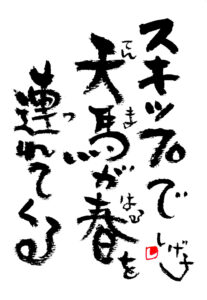 スキップで
天馬が春を
連れてくる
てんま
はる
つ
しげ子